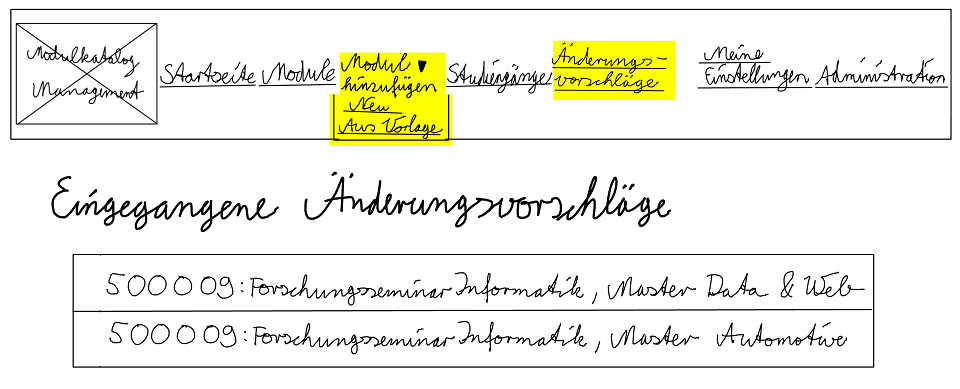 Modulkatalog
Management
Startseite
Module
Modul ▼
hinzufügen
Neu
Aus Vorlage
Studiengänge
Änderungs-
vorschläge
Meine
Einstellungen
Administration
Eingegangene Änderungsvorschläge
500009: Forschungsseminar Informatik, Master Data & Web
500009: Forschungsseminar Informatik, Master Automotive